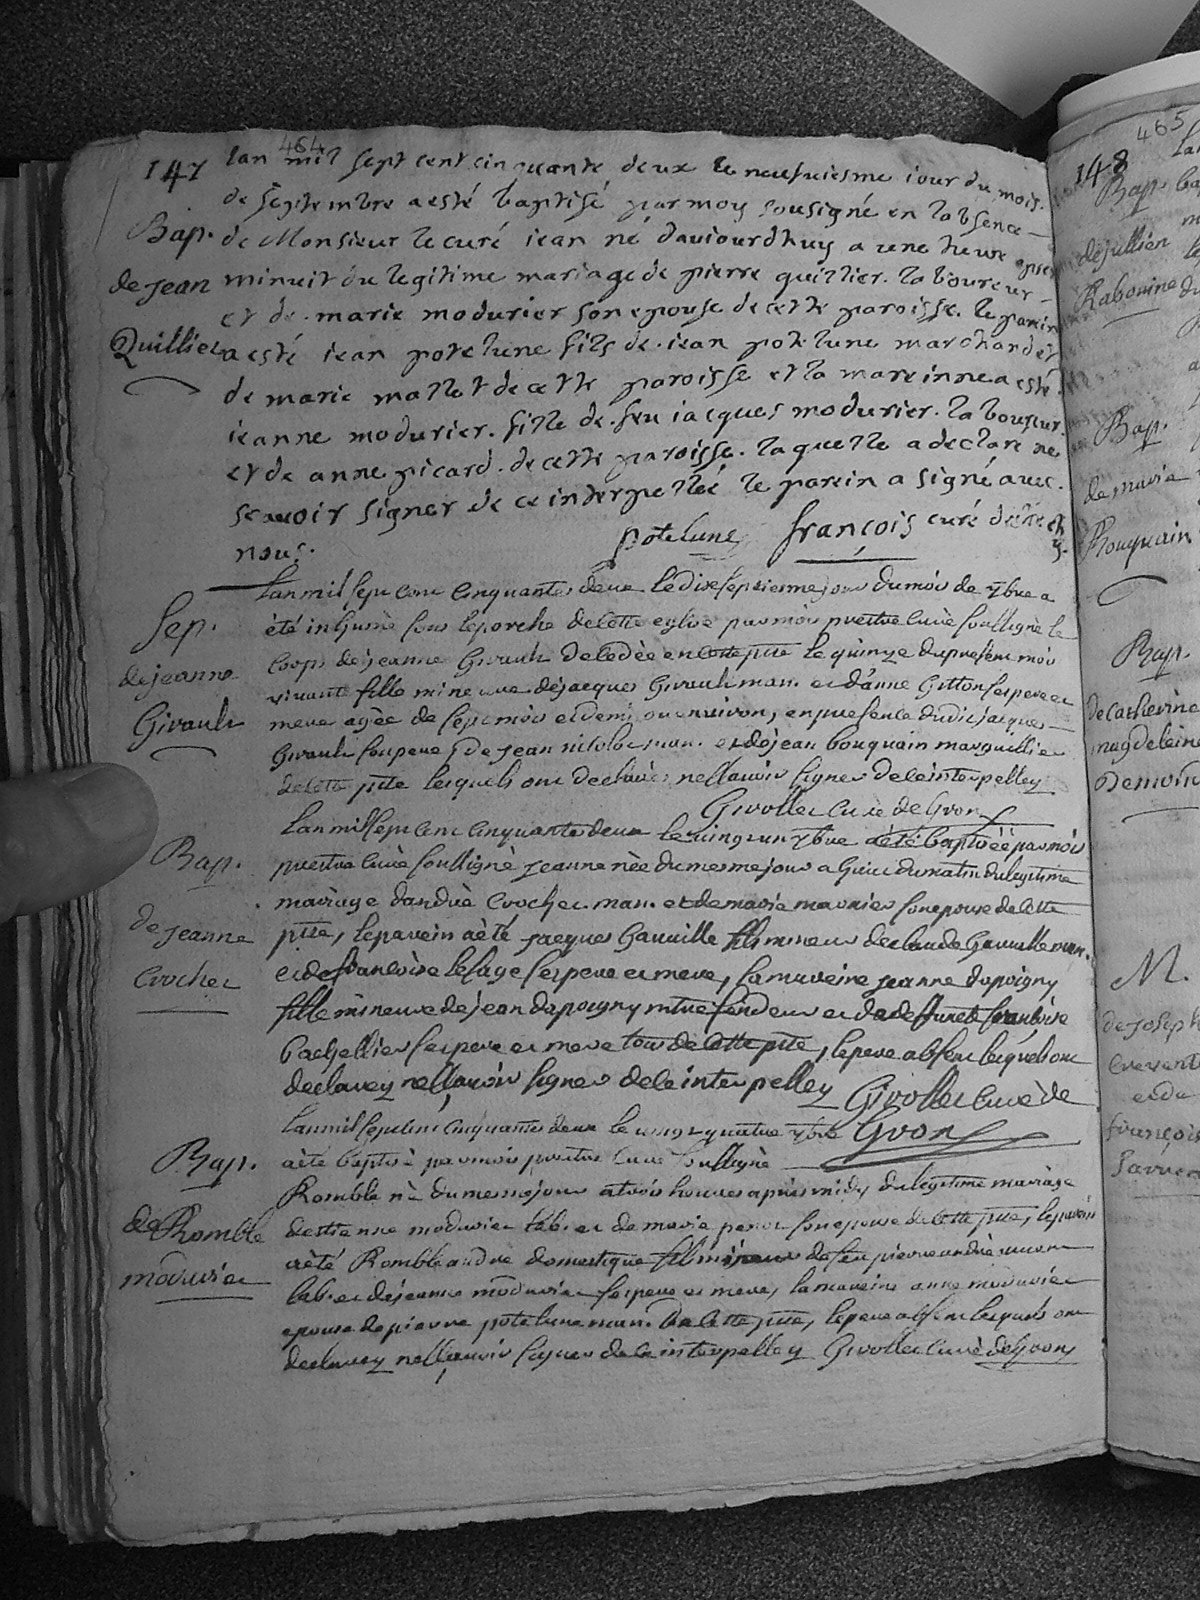 464
147
lan mil sept cent cinquante deux le neufuiesme iour du mois
de septembre a esté baptisé par moy sousigné en labsence
Bap. de Monsieur le curé iean né daujourdhuy a une heure apres
de Jean minuit du legitime mariage de pierre quillier laboureur
et de marie modurier son epouse de cette paroisse. le parein
Quillier a esté iean potelune fils de iean potelune marchand et
de marie mallet de cette paroisse et la mareinne a esté
ieanne modurier. fille de feu iacques modurier. laboureur
et de anne picard. de cette paroisse. laquelle a declaré ne
scauoir signer de ce interpellée le parein a signé auec
nous.
potelune françois curé
Lan mil sept cent Cinquante deux le dix septiemme jour du mois de 7bre a
Sep. été inhumé sous le porche de cette eglise par moi prestre curé soussigné le
de jeanne Corps de jeanne Girault decedée en cette psse le quinze du present mois
fille mineure de jacques Girault man. et d'anne Gitton ses pere et
Girault mere agée de sept mois et demi ou environ, en presence dudit jacques
Girault son pere, de jean nicolas man. et de jean bouquain marguillier
de cette psse lesquels ont declaré ne sçauoir signer de ce interpelley
Givollet Curé de Gron
Lan mil sept cent Cinquante deux le vingt un 7bre a été baptisée par moi
Bap. prestre curé soussigné jeanne née du mesme jour a huict du matin du legitime
mariage dandré Crochet man. et de marie meunier son epouse de cette
de jeanne psse, le parein a été jacques Gauuille fils mineur de claude Gauuille man.
Crochet et de francoise lesage ses pere et mere, la mareine jeanne dapoigny
fille mineure de jean dapoigny mtre fendeur et de deffuncte francoise
bachellier ses pere et mere tous de cette psse, le pere absent lesquels ont
declarey ne sçauoir signer de ce interpelley Givollet curé de
Gron
Lan mil sept cent Cinquante deux le vingt quatre 7bre
Bap. a été baptisé par moi prestre curé soussigné
Romble né du mesme jour a trois heures apres midy du legitime mariage
de Romble destienne modurier lab. et de marie son epouse de cette psse, le parein
a été Romble andré domestique fils mineur de feu pierre andré
modurier lab. et de jeanne modurier ses pere et mere, la mareine anne modurier
epouse de pierre potelune man. de cette psse, le pere absent lesquels ont
declarey ne sçauoir signer de ce interpelley Givollet curé de Gron
465
148
Bap.
de jullien
Rabouine
Bap.
de marie
Rouquain
Bap.
de Catherine
magdeleine
M.
de Joseph
et de
françois